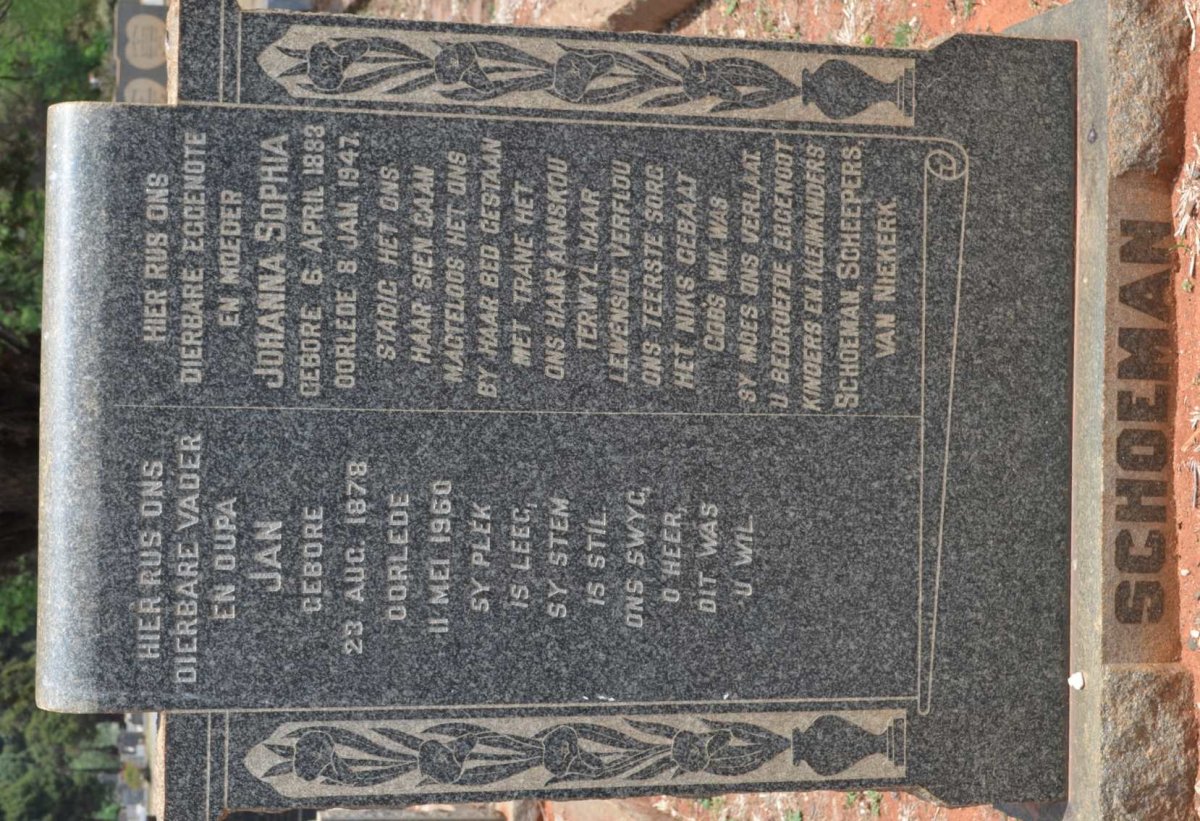 HIER RUS ONS
DIERBARE VADER
EN OUPA
JAN
GEBORE
23 AUG. 1878
OORLEDE
11 MEI 1960
SY PLEK
IS LEEG,
SY STEM
IS STIL.
ONS SWYG,
O HEER,
DIT WAS
U WIL.
HIER RUS ONS
DIERBARE EGGENOTE
EN MOEDER
JOHANNA SOPHIA
GEBORE 6 APRIL 1883
OORLEDE 8 JAN 1947.
STADIG HET ONS
HAAR SIEN GAAN
MAGTELOOS HET ONS
BY HAAR BED GESTAAN
MET TRANE HET
ONS HAAR AANSKOU
TERWYL HAAR
LEWENSLIG VERFLOU
ONS TEERSTE SORG
HET NIKS GEBAAT
GODS WIL WAS
SY MOES ONS VERLAAT.
U BEDROEFDE EGGENOOT
KINDERS EN KLEINKINDERS
SCHOEMAN, SCHEEPERS,
VAN NIEKERK
SCHOEMAN